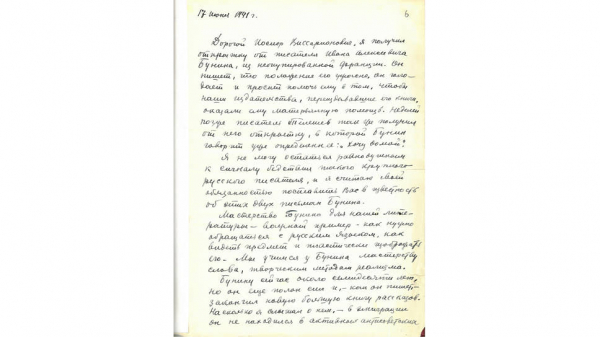 17 июня 1941 г.
6
Дорогой Иосиф Виссарионович, я получил
открытку от писателя Ивана Алексеевича
Бунина, из неоккупированной Франции. Он
пишет, что положение его ужасно, он голо-
дает и просит помочь ему в том, чтобы
наши издательства, переиздававшие его книги,
оказали ему материальную помощь. Неделей
позже писатель Телешев также получил
от него открытку, в которой Бунин
говорит уже определенно: "Хочу домой".
Я не могу остаться равнодушным
к сигналу бедствия такого крупного
русского писателя, и я считаю своей
обязанностью поставить Вас в известность
об этих двух письмах Бунина.
Мастерство Бунина для нашей лите-
ратуры – пример – как нужно
обращаться с русским языком, как
видеть предмет и пластически изображать
его. Мы учимся у Бунина мастерству
слова, творческим методам реализма.
Бунину сейчас около семидесяти лет,
но он еще полон сил и, – как он пишет, –
закончил новую большую книгу рассказов.
Насколько я слышал о нем, – в эмиграции
он не находился в активных антисоветских